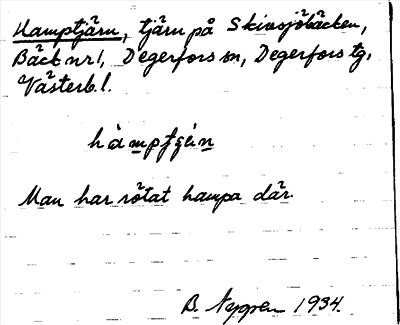 Hamptjärn, tjärn på Skivsjöbäcken,
Bäck nr 1, Degerfors sn, Degerfors tg,
Västerb. l.
hàmpʃɡà̀n
Man har rötat hampa där.
B. 1934.